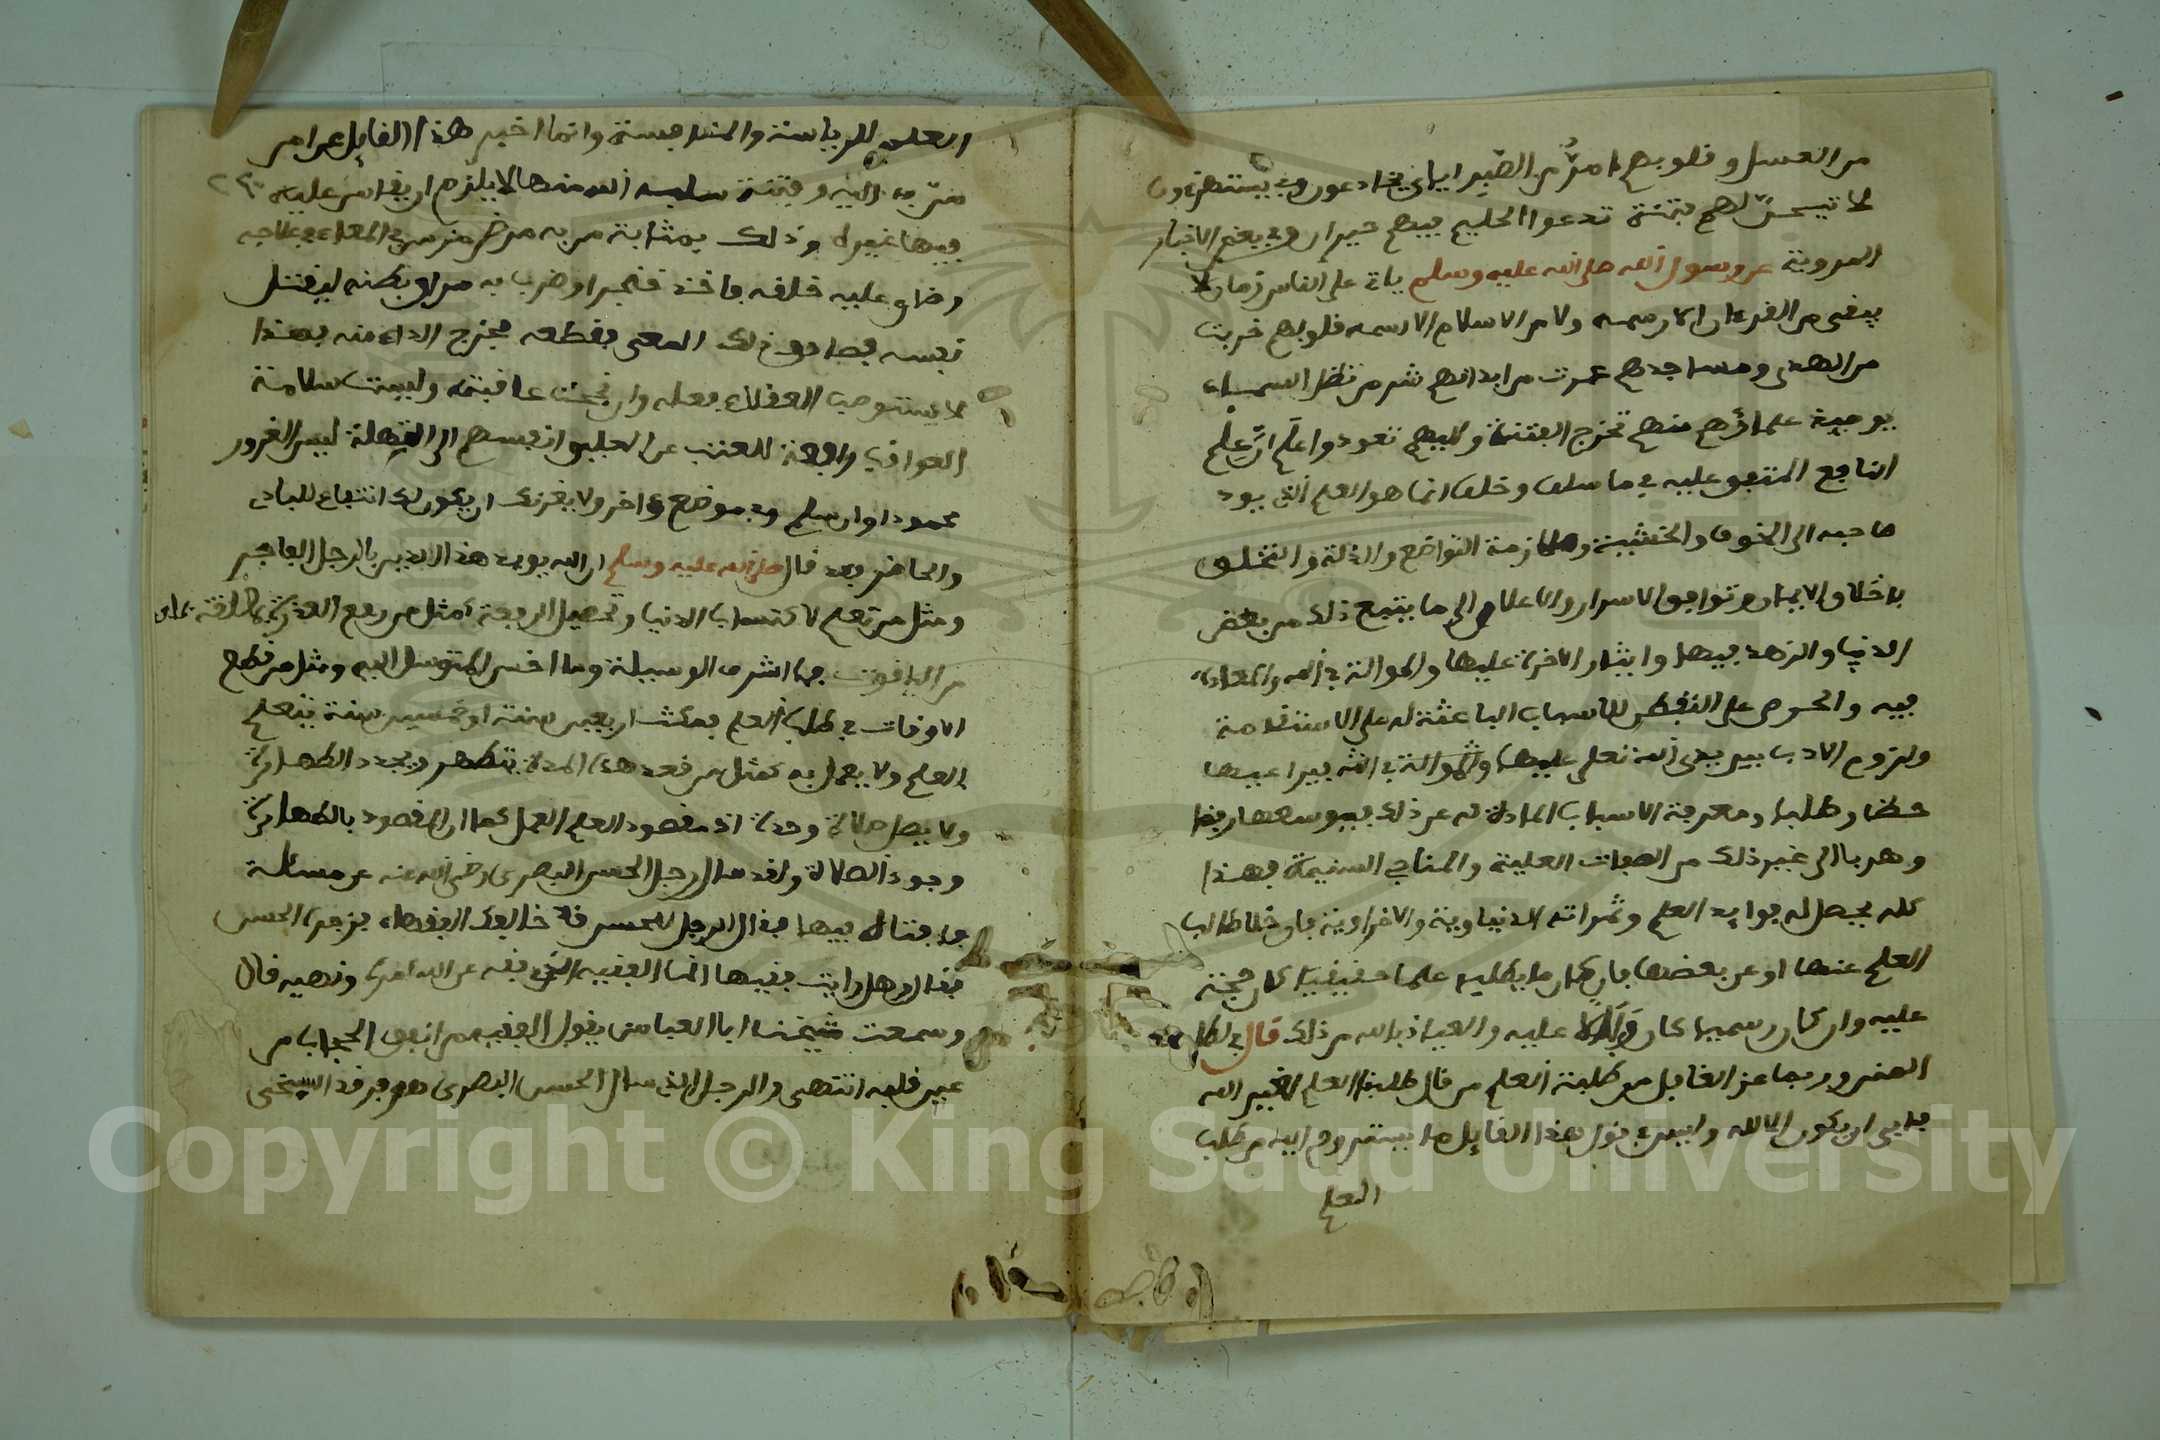 من العسل وقلوبهم امرّ من الصّبِر ايّاي يخادعون وبي يستهزءون
لاتيحنّ لهم فتنة تدعوا الحليم فيهم حيران وفي بعض الاخبار
المروية عن رسول الله صلى الله عليه وسلم ياتي على الناس زمان لا
يبقى من القرءان الا رسمه ولا من الاسلام الا اسمه قلوبهم خربت
من الهدى ومساجدهم عمرت من ابدانهم شر من تظل السماء
يومئذ علماؤهم منهم تخرج الفتنة واليهم تعود واعلم ان علم
النافع المتفق عليه في ما سلف وخلف انما هو العلم الذي يود
صاحبه الى الخوف والخشية وملازمة التواضع والذلة والتخلق
باخلاق الايمان وتوافق الاسرار والاعلان الى ما يتبع ذلك من بغض
الدنيا والزهد فيها وايثار الاخرة عليها والموالاة في الله والمعاداة
فيه والحرص على التفطن للاسباب الباعثة له على الاستقامة
ولزوم الادب بين يدي الله تعلى عليها
حضا وطلبا ومعرفة الاسباب المادة له عن ذلك
وهربا الى غير ذلك من الصفات العلية والمناحي السنية فهذا
كله يحصل له فوايد العلم وثمراته الدنياوية والاخراوية فان خلا طالب
العلم عنها او عن بعضها فان كان ما يطلبه علما حقيقيا كان حجة
عليه وان كان رسميا كان وبالا عليه والعياذ بالله من ذلك قال في
الغرور بما عز القايل من طلبة العلم من قال طلبنا العلم لغير الله
فابى ان يكون الا لله وليس في قول هذا القايل ما يستروح اليه من طلب
العلم
العلم للرياسة والمنافسة وانما اخبر هذا القايل عن امر
منّ به الله وفتنة سلمه الله منها لا يلزم ان يقاس عليه
فيها غيره وذلك بمثابة من به مرض مزمن في المعاء وعلاجه
وضاق عليه خلقه فاخذ خنجرا وضرب به مراق بطنه ليقتل
نفسه فصادف ذلك المعى فقطعه فخرج الداء منه فهذا
لا يستصوب العقلاء فعله وان نجحت عاقبته وليست سلامة
العواقب رافعة للعتب عن الملقين انفسهم الى التهلكة ليس المغرور
محمودا وان سلم وفي موضع ءاخر ولا يغرنك ان يكون له انتفاع للبادي
والحاضر فقد قال صلى الله عليه وسلم ان الله يويد هذا الدين بالرجل الفاجر
ومثل من تعلم لاكتساب الدنيا وتحصيل الرفعة كمثل من رفع العذرة بملعقة
من الياقوت فما اشرف الوسيلة وما اخس المتوسل اليه ومثل من قطع
الاوقات في طلب العلم فمكث اربعين سنة او خمسين سنة يتعلم
العلم ولا يعمل به كمثل من قعد هذه المدة يتطهر ويجدد الطهارة
ولا يصل صلاة وحدة اذ مقصود العلم العمل كما ان المقصود بالطهارة
وجود الصلاة ولقد سال رجل الحسن البصري رضي الله عنه عن مسالة
فافتاه فيها فقال الرجل للحسن قد خالفك الفقهاء فزجره الحسن
فقال وهل رايت فقيها انما الفقيه الذي فقه عن الله امره ونهيه قال
وسمعت شيخنا ابا العباس يقول الفقيه من انفق الحجاب عن
عين قلبه انتهى والرجل الذي سال الحسن البصري هو فرقد السبخي